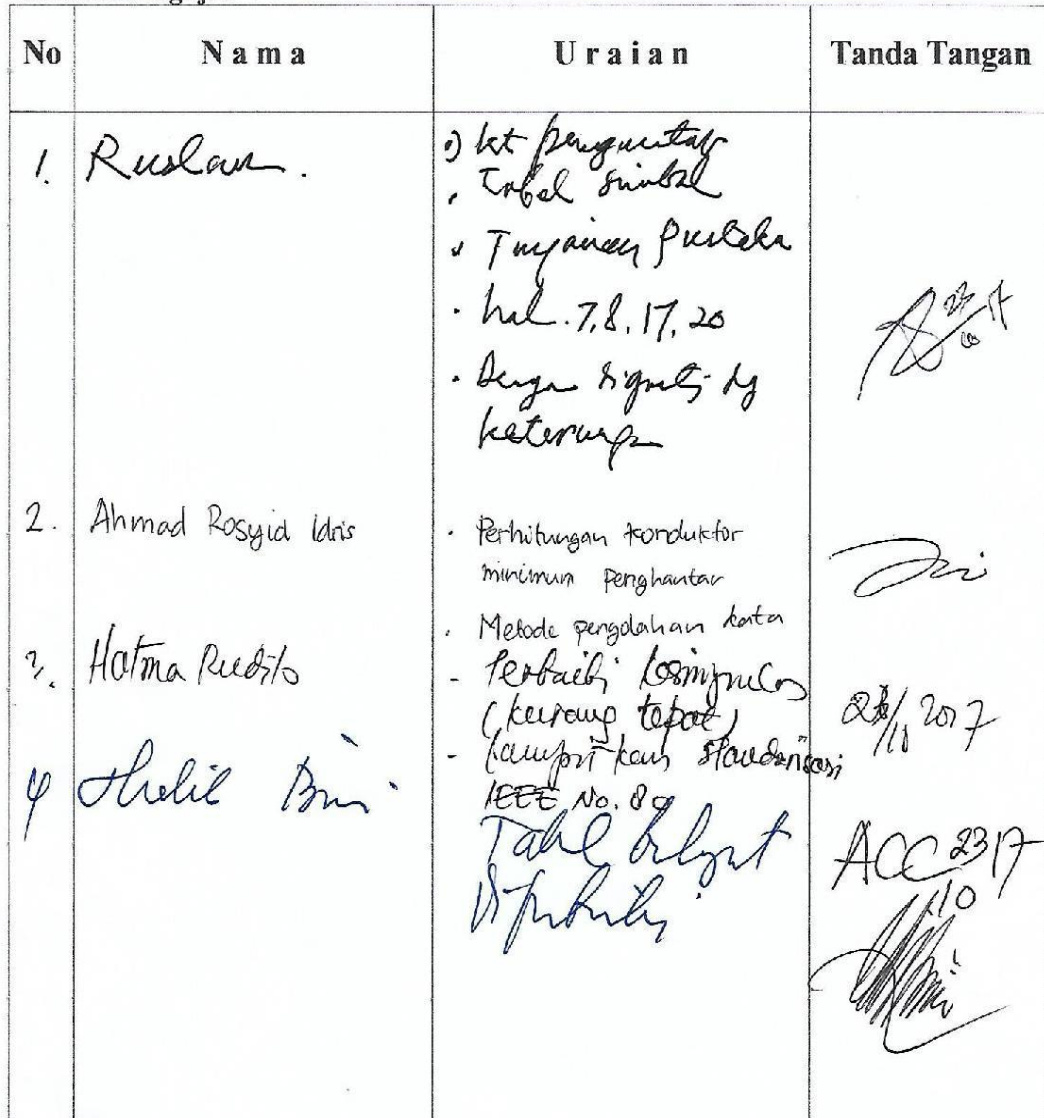 No Nama Uraian Tanda Tangan
1. Ruslan.
kt pengantar
Tabel simbol
Tinjauan Pustaka
hal. 7, 8, 17, 20
keterangan
2. Ahmad Rosyid Idris
Perhitungan konduktor
minimum penghantar
Metode pengolahan data
3. Hatma Rudito
- Perbaiki kesimpulan
(kurang tepat)
- Lampirkan standarisasi
IEEE No. 80
/10 2017
4
Tabel
Diperbaiki
ACC 23/10 17